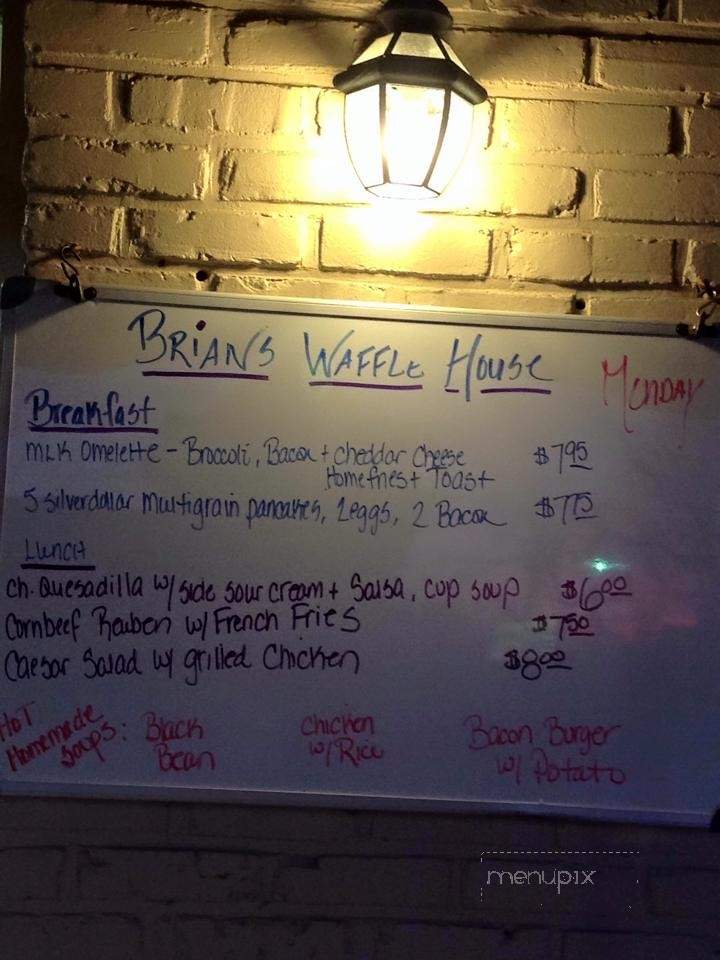 BRIANS WAFFLE HOUSE
MONDAY
Breakfast
MLK Omelette - Broccoli, Bacon + Cheddar Cheese $7.95
Homefries + Toast
5 silverdollar multigrain pancakes, 2 eggs, 2 Bacon $7.75
Lunch
Ch. Quesadilla w/ side sour cream + Salsa, cup soup $6.00
Cornbeef Reuben w/ French Fries $7.50
Caesar Salad w/ grilled Chicken $8.00
HOT Homemade Soups:
Black Bean
Chicken w/ Rice
Bacon Burger w/ Potato
menupix